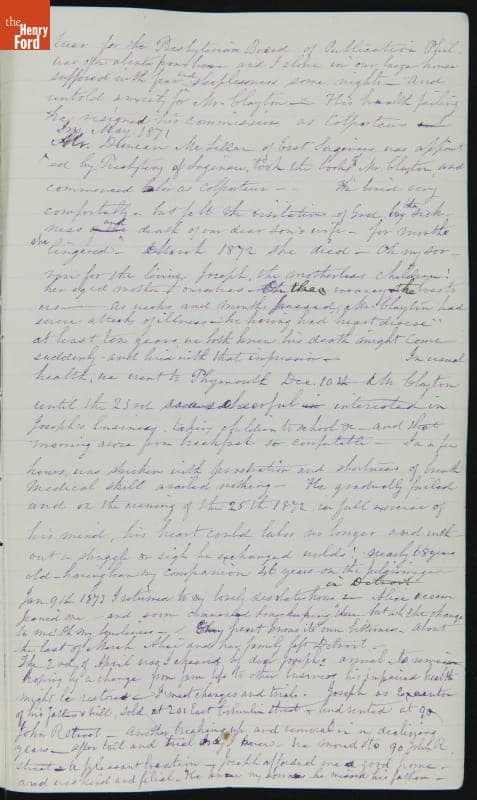 the
Henry
Ford
for the Presbyterian Board of Publication Phil.
was often absent from home and I alone in our large house
suffered with fear and sleeplessness some nights - and
untold anxiety for Mr. Clayton - His health failing
he resigned his commission as Colporteur
In May 1871
Mr. Duncan Mc Lellan of East Saginaw was appoint
ed by Presbytery of Saginaw, took the books of Mr. Clayton, and
commenced labor as colporteur - We lived very
comfortably - but felt the visitations of God, by the sick-
ness and death of our dear son's wife - for months
she lingered - March 1872 she died - Oh my sor-
row for the living Joseph, the motherless children!
her aged mother & ourselves -
us - As weeks and months passed, Mr. Clayton had
severe attacks of illness - he having had heart disease
at least ten years, we both knew his death might come
suddenly - and live with that impression - In usual
health, we went to Plymouth Dec. 10th - Mr. Clayton
until the 23rd was cheerful interested in
Joseph's business, taking children to school &c - and that
morning arose from breakfast so comfortable - In a few
hours, was stricken with prostration and shortness of breath
Medical skill availed nothing - He gradually failed
and on the evening of the 25th 1872 in full exercise of
his mind, his heart could labor no longer and with
out a struggle or sigh he exchanged worlds! nearly 68 years
old - having been my companion 46 years on the pilgrimage -
in Detroit
Jan. 9th 1873 I returned to my lonely desolate house - Alice
joined me - and soon commenced housekeeping here but oh the change
to me Oh my loneliness - Every heart knows its own bitterness. About
the last of March Alice and her family left Detroit -
The 2nd of April was cheered by dear Joseph's arrival to remain
hoping by a change from farm life to other business, his impaired health
might be restored - I met changes and trial. Joseph as Executor
of his father's will, sold at 201 East Columbia street - and rented at 90
John R Street - Another breaking up and removal in my declining
years - After toil and trial we moved to 90 John R.
street - a pleasant location - Joseph afforded me a good home -
and was kind and filial - He knew my sorrow he missed his father -